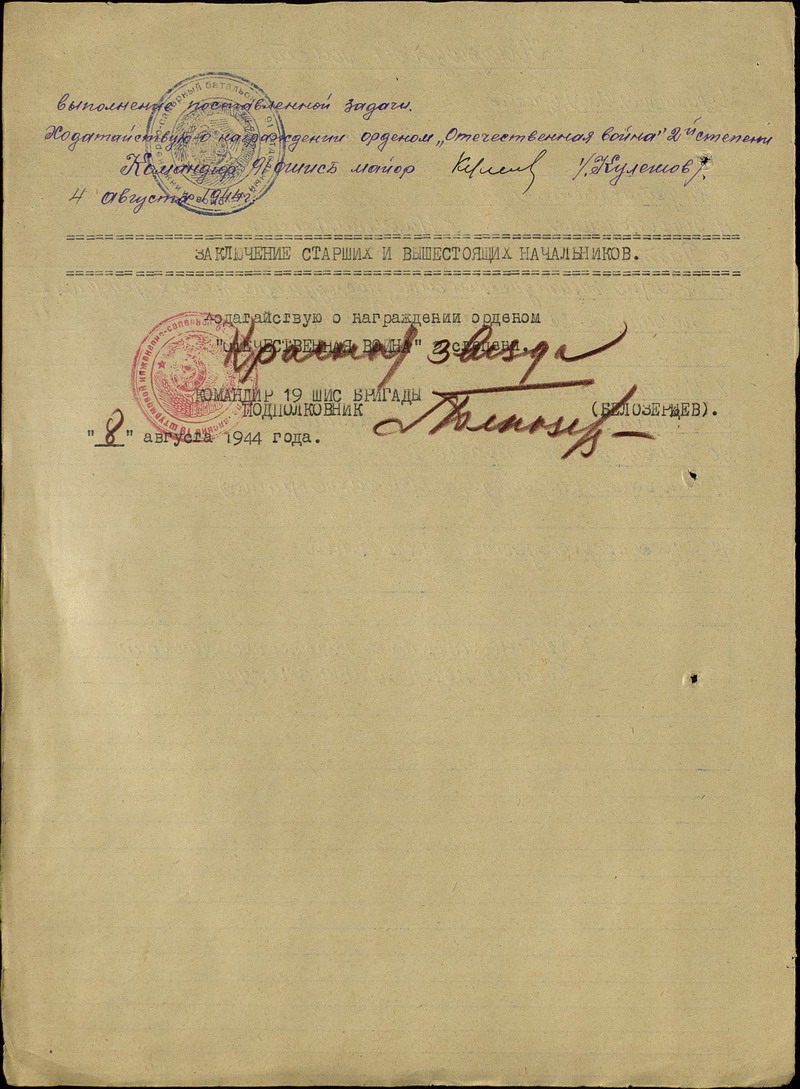 выполнение поставленной задачи.
Ходатайствую о награждении орденом „Отечественная война" 2й степени
Командир 91 ошисб майор /Кулешов/.
4 августа 1944г.
ЗАКЛЮЧЕНИЕ СТАРШИХ И ВЫШЕСТОЯЩИХ НАЧАЛЬНИКОВ.
Ходатайствую о награждении орденом
"ОТЕЧЕСТВЕННАЯ ВОЙНА" степени.
Красная звезда
КОМАНДИР 19 ШИС БРИГАДЫ
ПОДПОЛКОВНИК (БЕЛОЗЕРЦЕВ).
"8" августа 1944 года.